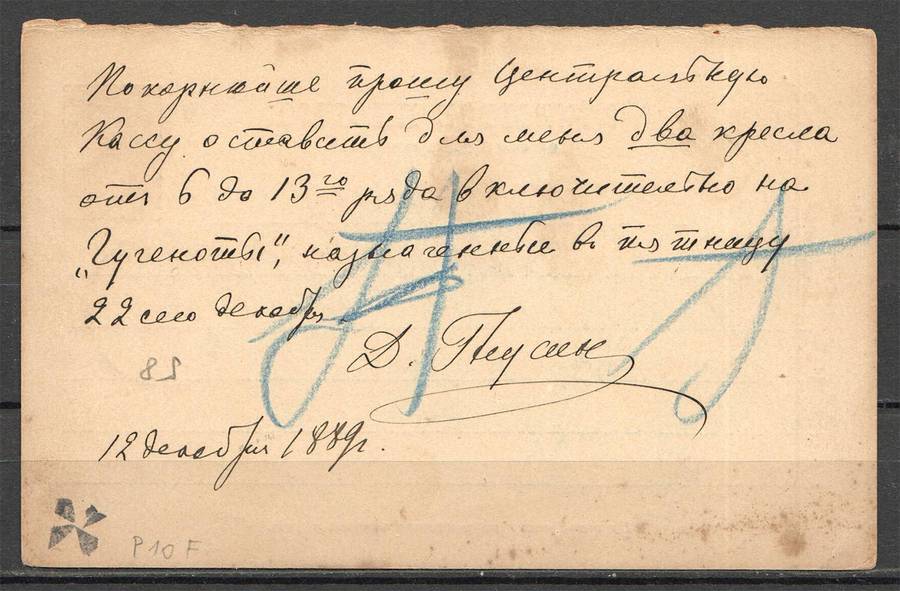 Покорнѣйше прошу Центральную
Кассу оставить для меня два кресла
отъ 6 до 13го ряда включительно на
„Гугеноты", назначенные въ пятницу
22 сего декабря.
Д.
12 декабря 1889г.
P10F